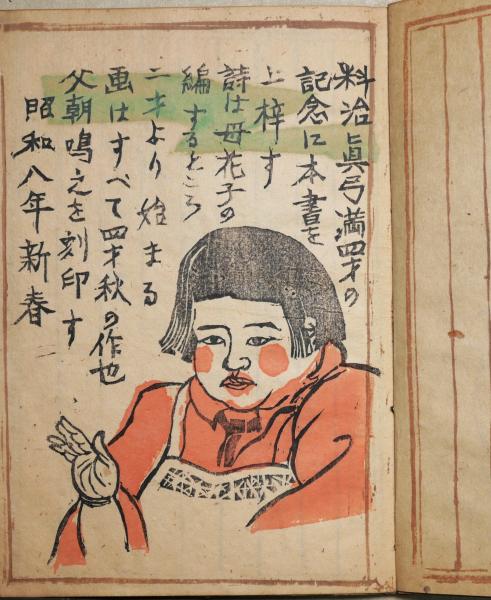 料治眞弓満四才の
記念に本書を
上梓す
詩は母花子の
編するところ
二才より始まる
画はすべて四才秋の作也
父朝鳴之を刻印す
昭和八年新春